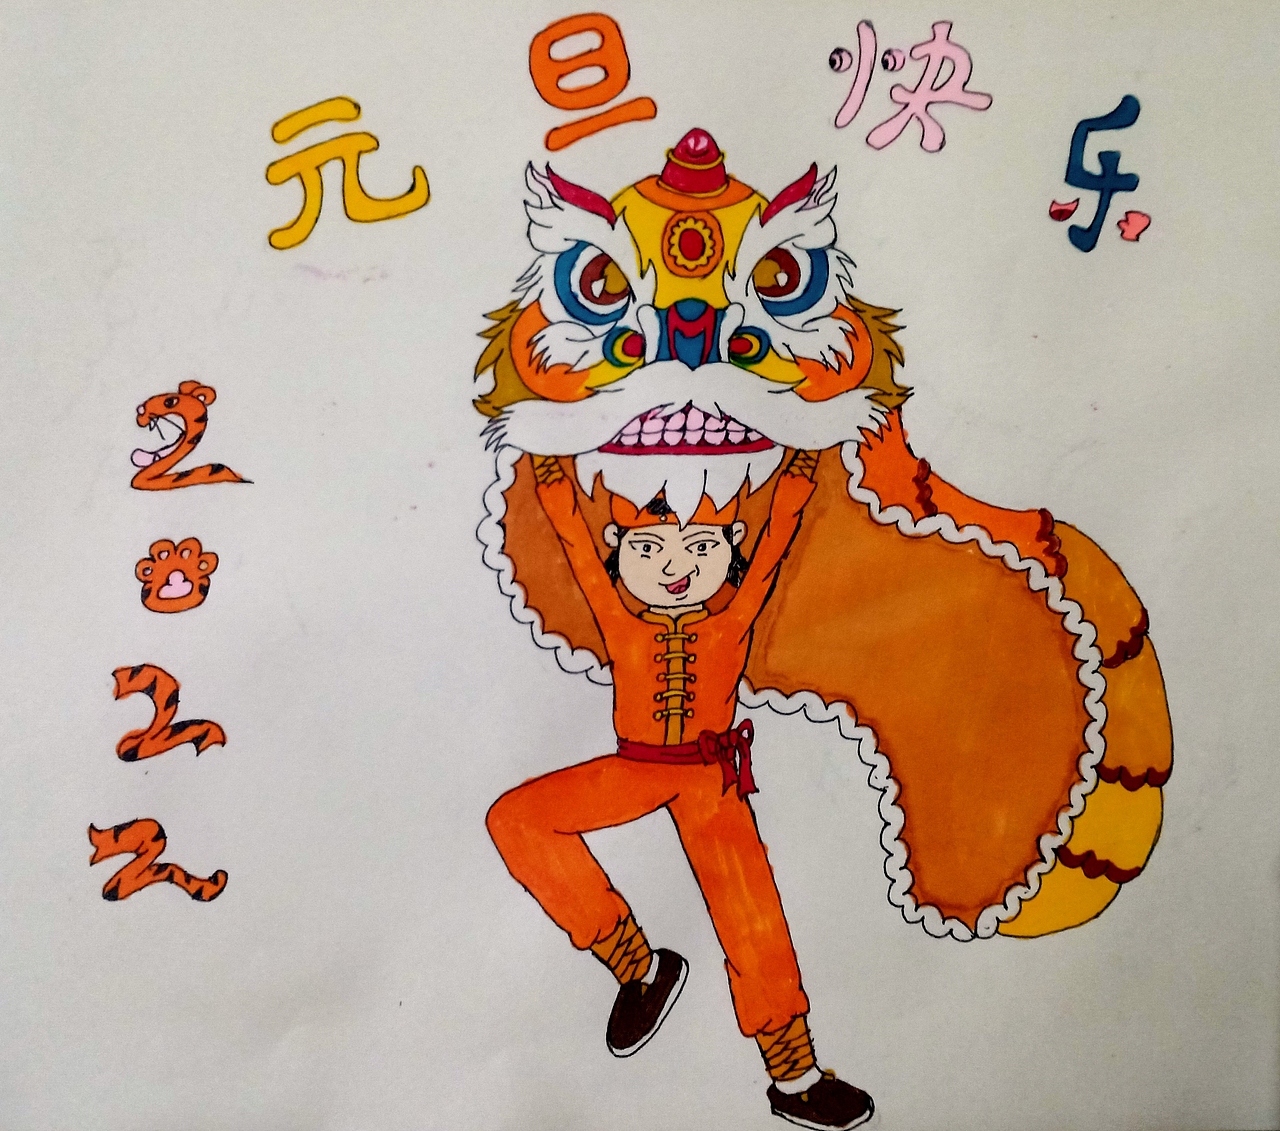 元旦快乐
2022